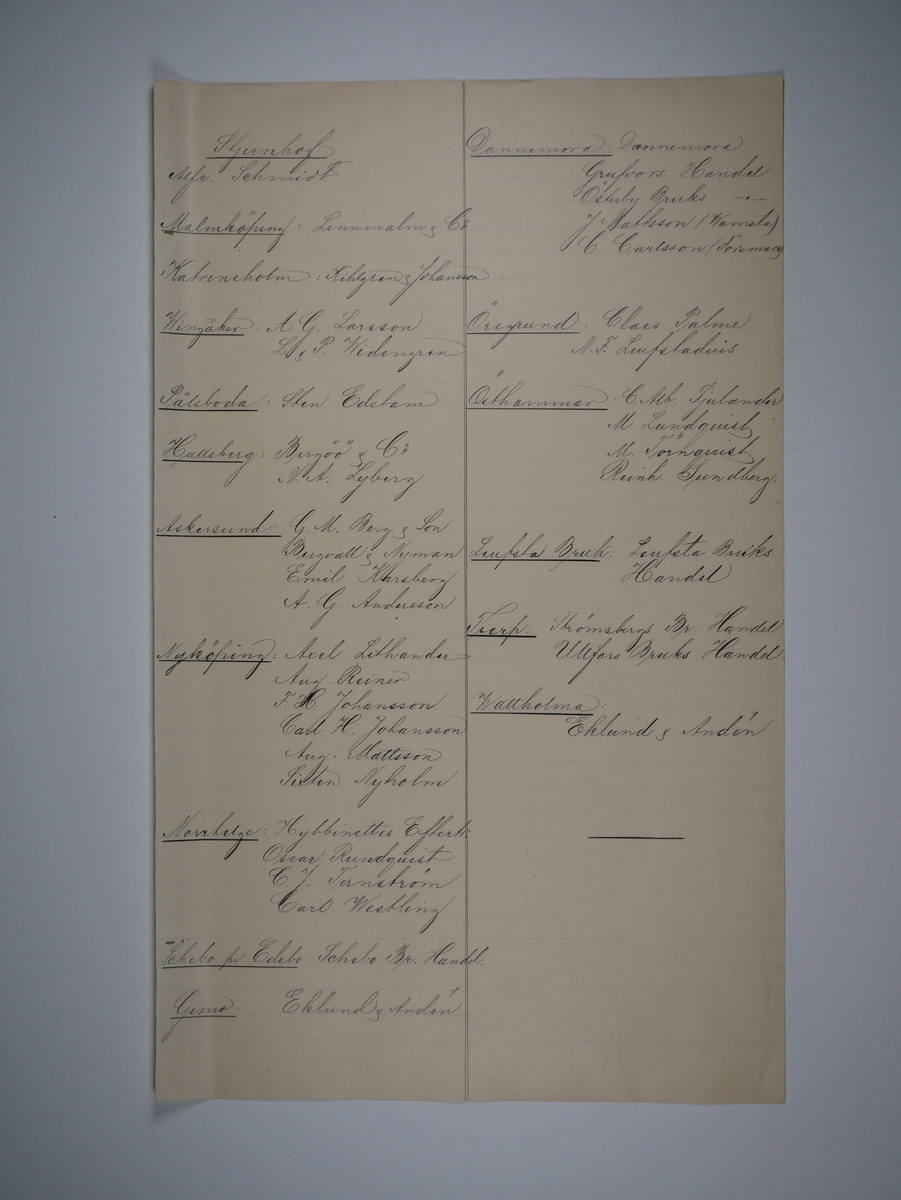 Stjernhof
Alfr. Schmidt
Malmköping: Lennmalm & Co
Katrineholm: Kihlgren & Johansson
Wingåker: A. G. Larsson
L. & P. Widengren
Pålsboda: Sten Edstam
Hallsberg: Bergöö & Co
N. A. Lyberg
Askersund: G. M. Berg & Son
Bergvall & Nyman
Emil Karsberg
A. G. Andersson
Nyköping: Axel Lithander
Aug. Reiner
F. H. Johansson
Carl H. Johansson
Aug. Mattsson
Sixten Nyholm
Norrtelge: Hybbinettes Eftertr.
Oscar Rundquist
C. J. Ternström
Carl Westling
Schebo pr Edebo: Schebo Br. Handel.
Gimo: Eklund & Andén
Dannemora: Dannemora
Grufvors Handel
Österby Bruks -"-
J. Mattsson (Wamsta)
C. Carlsson (Forsmark)
Öregrund: Claes Palme
N. F. Leufstadius
Östhammar: C. Alb. Sjulander
M Lundquist
M. Törnquist
Reinh. Sundberg.
Leufsta Bruk: Leufsta Bruks
Handel
Tierp: Strömsbergs Br. Handel
Ullfors Bruks Handel
Wattholma:
Eklund & Andén